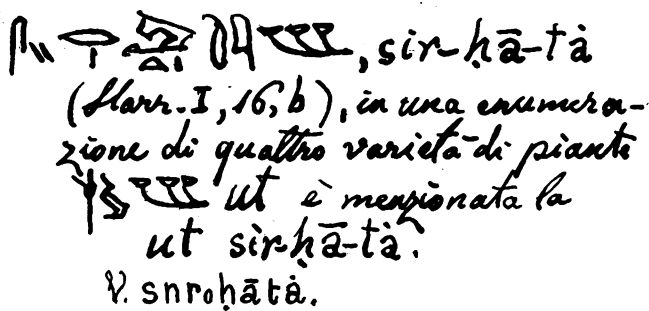 , sir-ḥā-tȧ
(Harr. I, 16, b), in una enumera-
zione di quattro varietà di piante
ut è menzionata la
ut sìr-ḥā-tȧ.
V. snroḥātȧ.